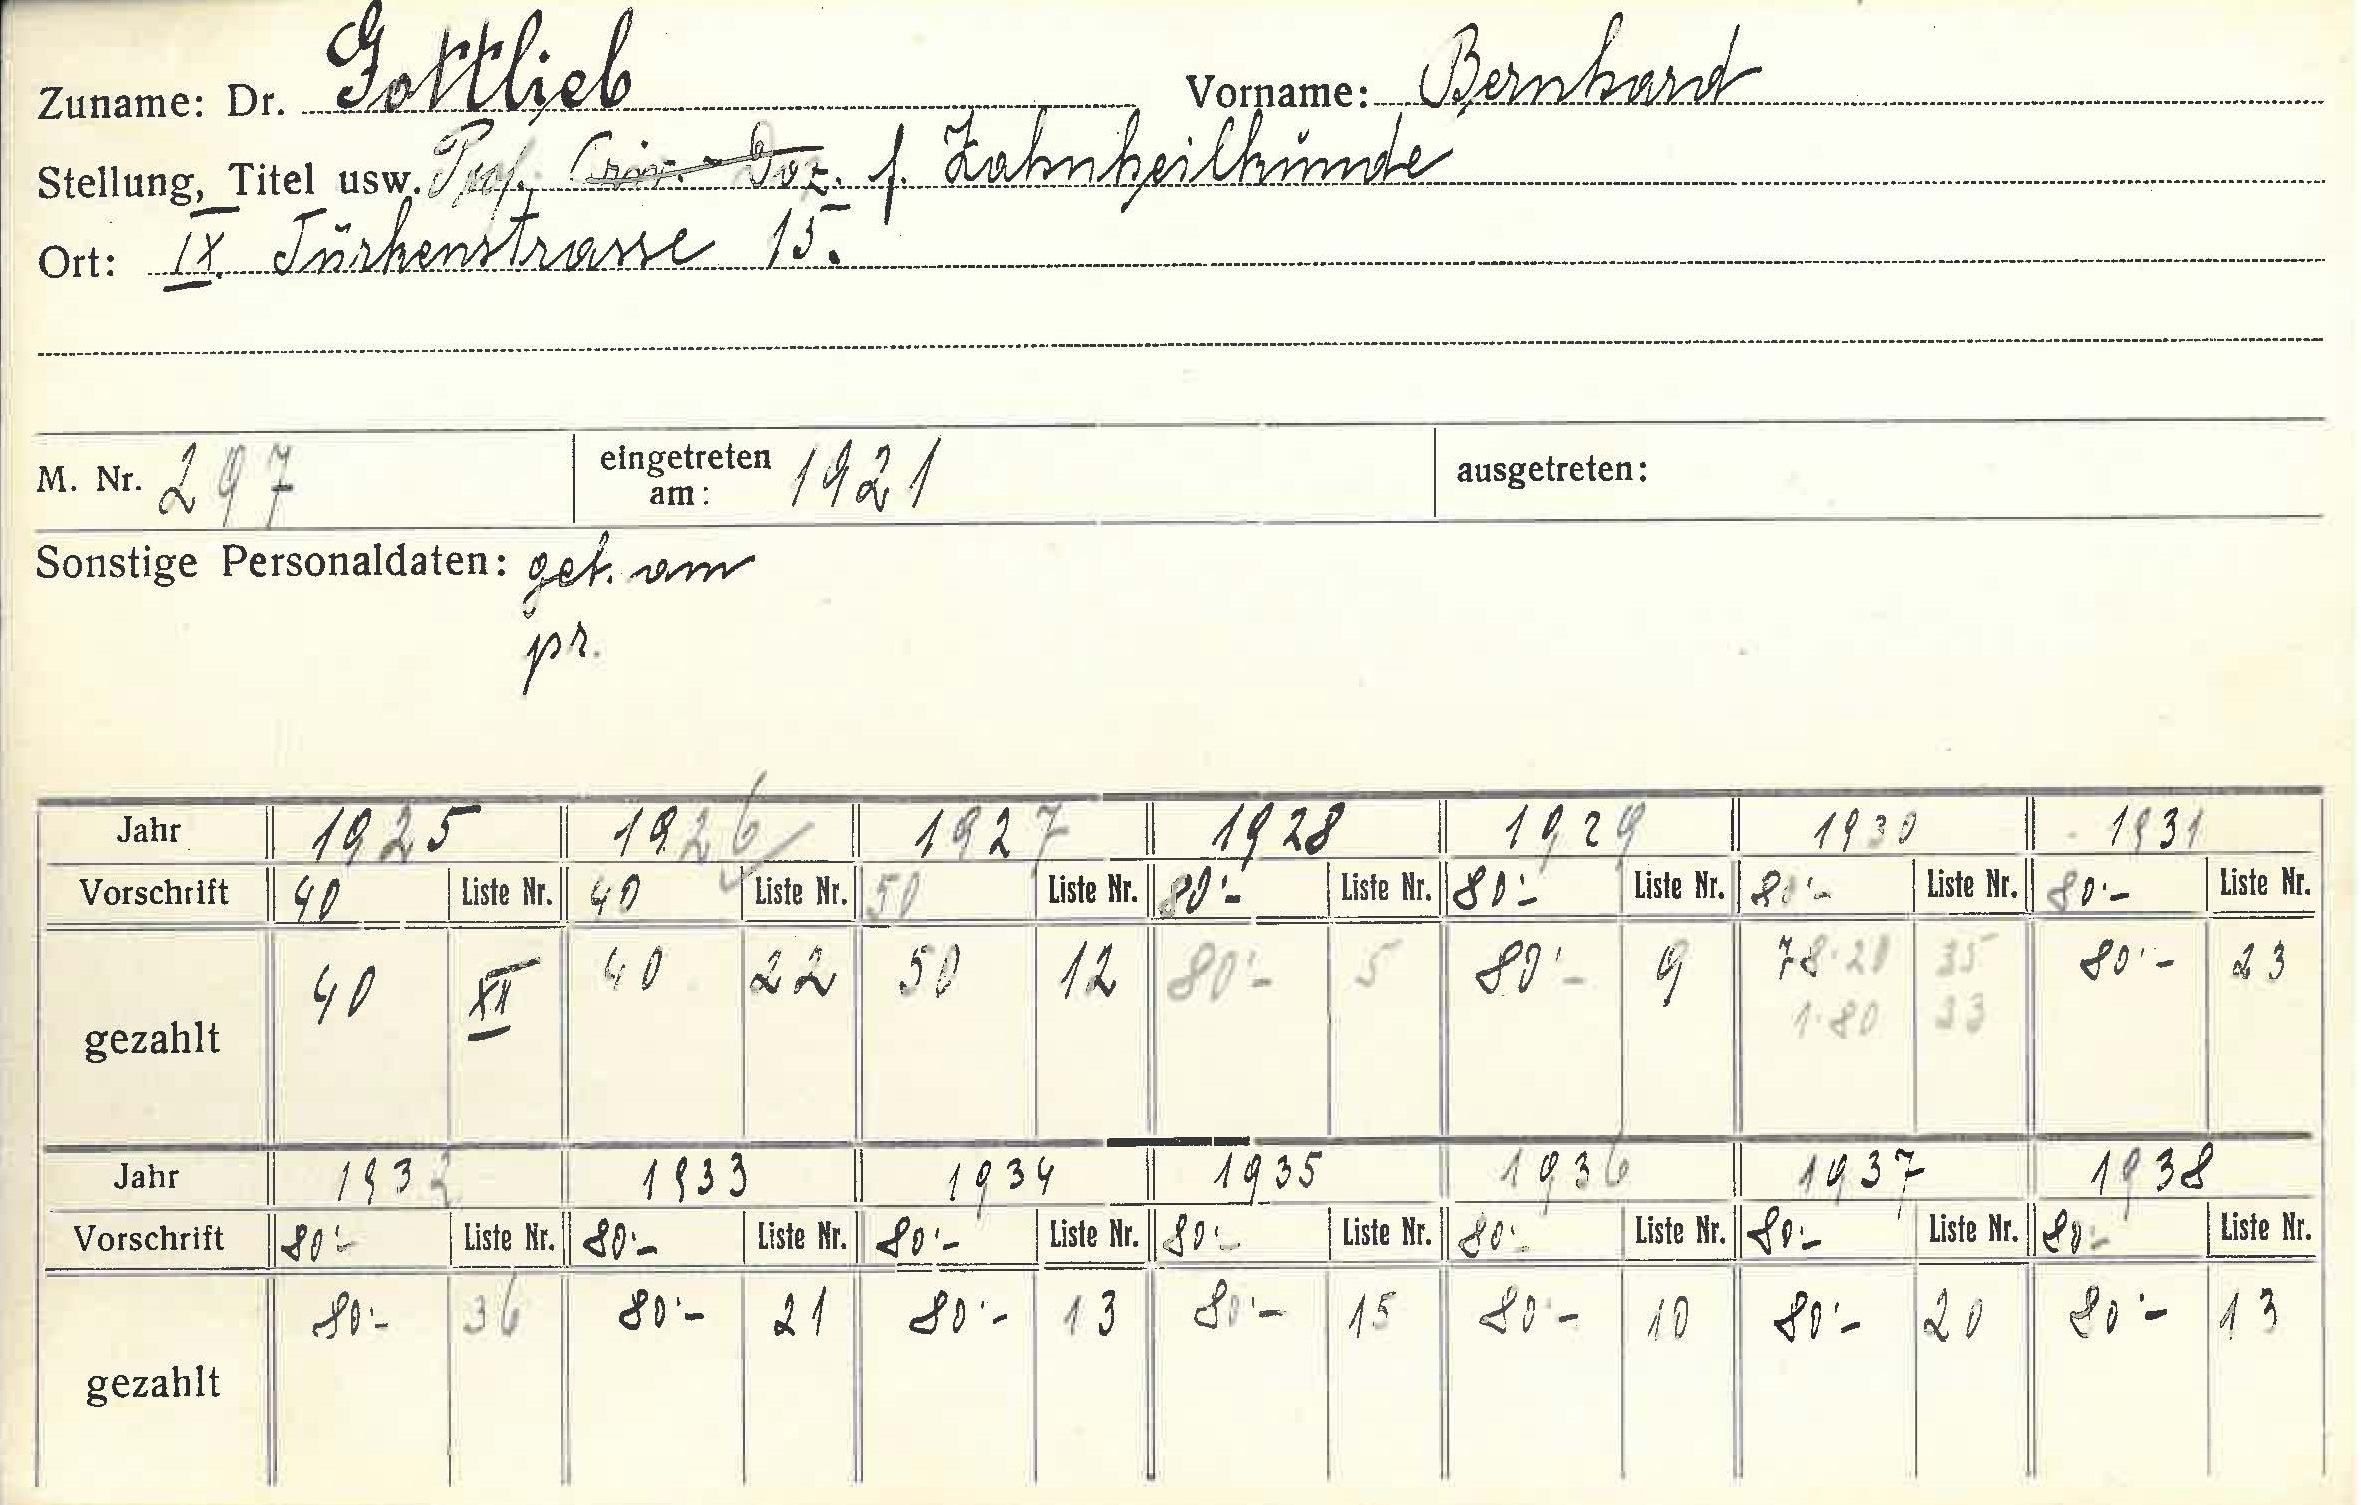 Zuname: Dr. Gottlieb Vorname: Bernhard
Stellung, Titel usw. Prof. Priv.-Doz. f. Zahnheilkunde
Ort: IX. Türkenstrasse 15.
M. Nr. 297 eingetreten am: 1921 ausgetreten:
Sonstige Personaldaten: geb. am
pr.
Jahr 1925 1926 1927 1928 1929 1930 1931
Vorschrift 40 Liste Nr. 40 Liste Nr. 50 Liste Nr. 80·- Liste Nr. 80·- Liste Nr. 80·- Liste Nr. 80·- Liste Nr.
gezahlt 40 XII 40 22 50 12 80·- 5 80·- 9 78·20 35 80·- 23
1·80 33
Jahr 1932 1933 1934 1935 1936 1937 1938
Vorschrift 80·- Liste Nr. 80·- Liste Nr. 80·- Liste Nr. 80·- Liste Nr. 80·- Liste Nr. 80·- Liste Nr. 80·- Liste Nr.
gezahlt 80·- 36 80·- 21 80·- 13 80·- 15 80·- 10 80·- 20 80·- 13